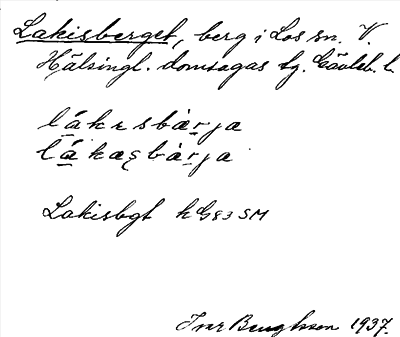 Lakisberget, berg i Los sn. V.
Hälsingl. domsagas tg. Gävleb. l.
lákɩsbàrja
lákæsbàrja
Lakisbgt k G83 SM
Ivar Bengtsson 1937.